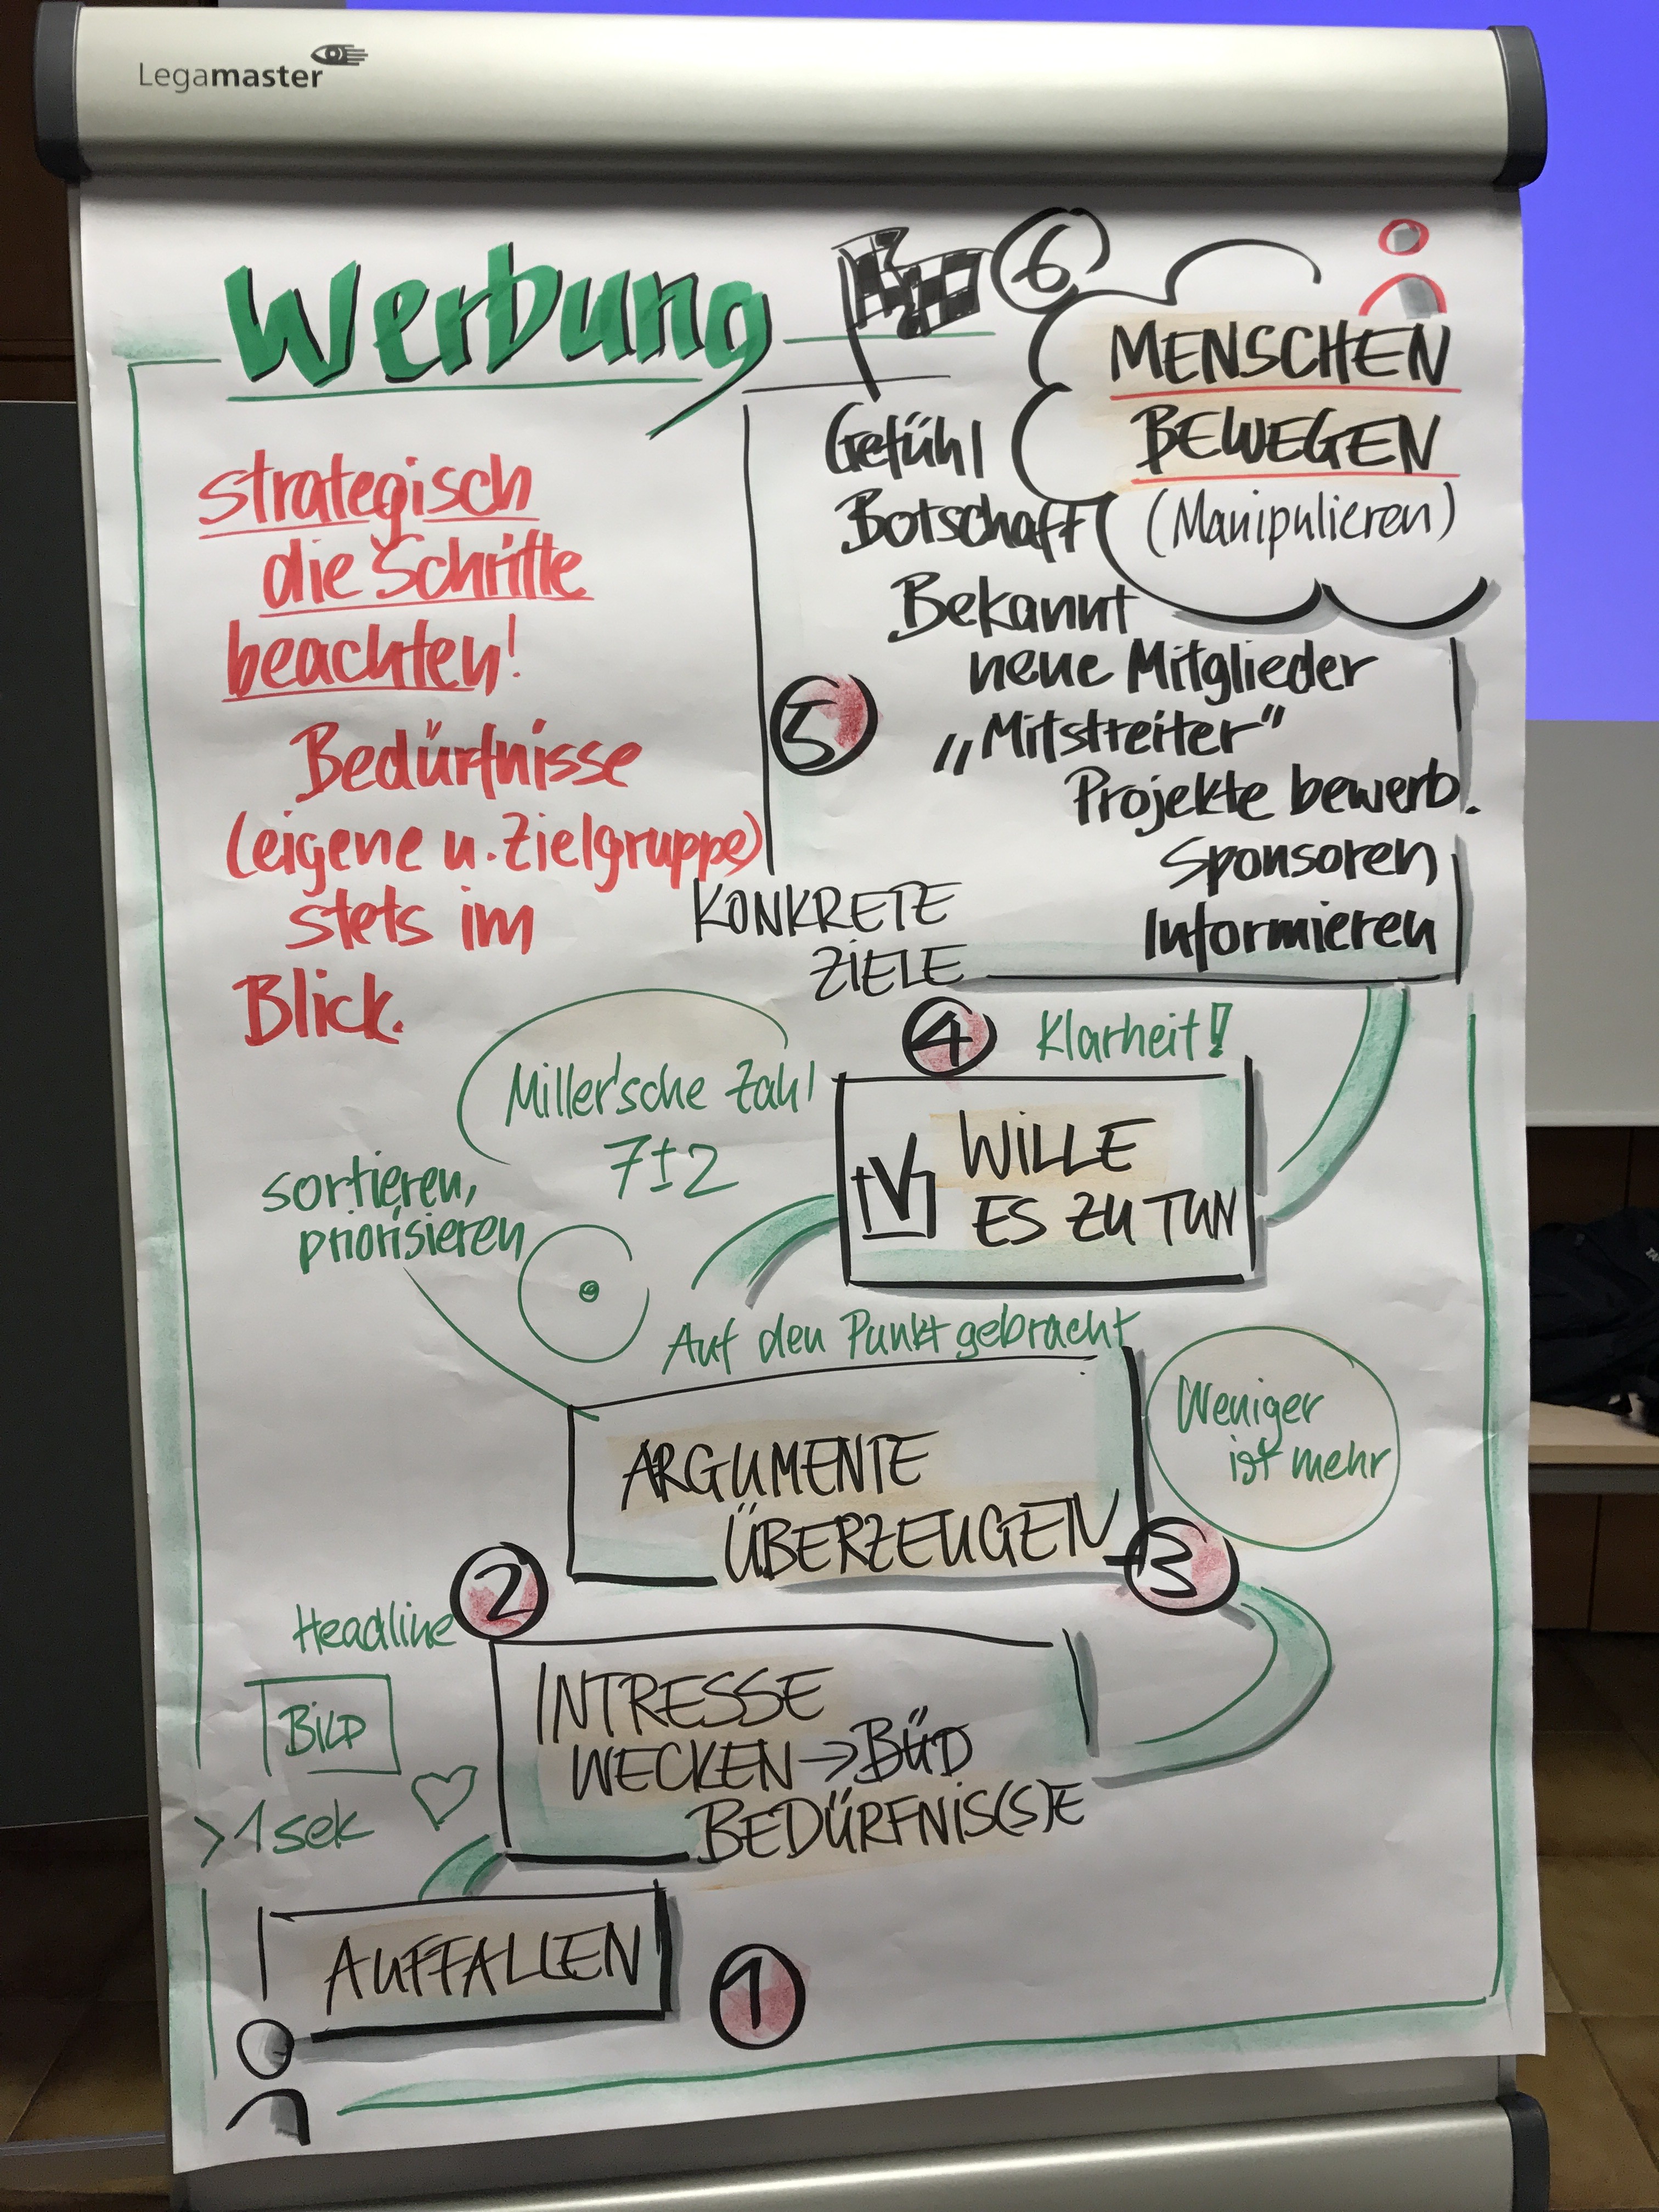 Legamaster
Werbung
6
MENSCHEN
BEWEGEN
(Manipulieren)
strategisch
die Schritte
beachten!
Bedürfnisse
(eigene u. Zielgruppe)
stets im
Blick.
Gefühl
Botschaft
Bekannt
neue Mitglieder
„Mitstreiter"
Projekte bewerb.
Sponsoren
Informieren
5
KONKRETE
ZIELE
4
Klarheit!
WILLE
ES ZU TUN
Miller'sche Zahl
7±2
sortieren,
priorisieren
Auf den Punkt gebracht
ARGUMENTE
ÜBERZEUGEN
3
Weniger
ist mehr
2
Headline
BILD
>1sek
INTRESSE
WECKEN→
BEDÜRFNIS(S)E
AUFFALLEN
1